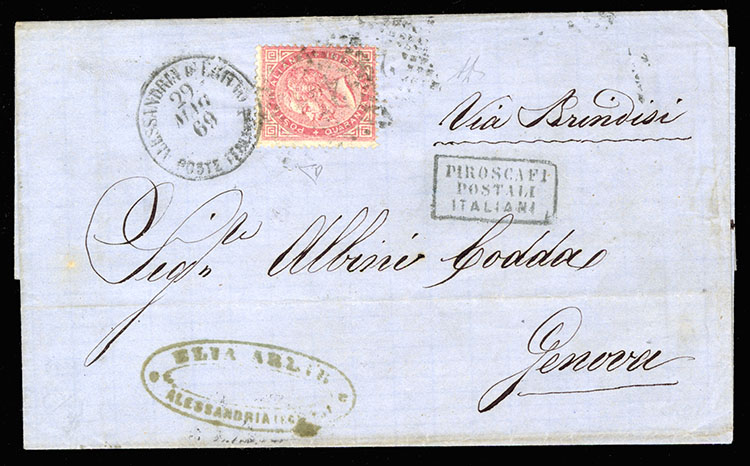 ALESSANDRIA D'EGITTO
29
MAG
69
POSTE ITALIANE
Via Brindisi
PIROSCAFI
POSTALI
ITALIANI
Sigri Albini Codda
Genova
ELIA
ALESSANDRIA